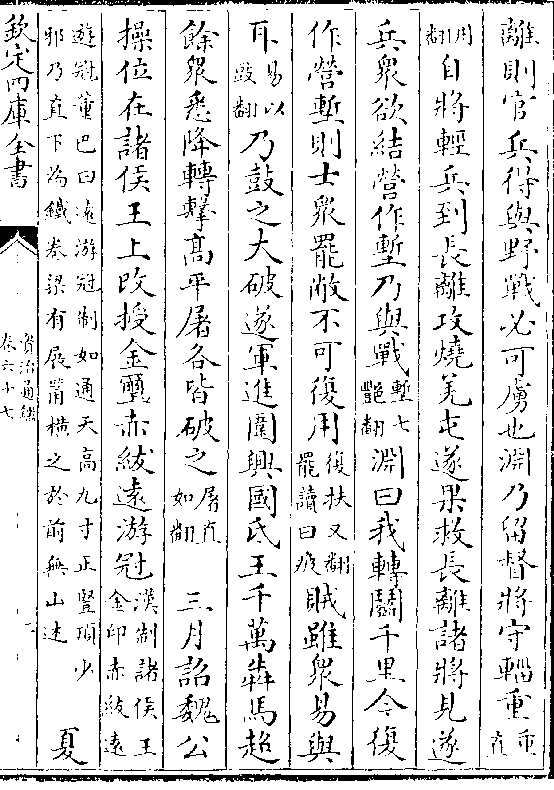 離則官兵得與野戰必可虜也淵乃留督將守輜重重直
用翻自將輕兵到長離攻燒羌屯遂果救長離諸將見遂
兵衆欲結營作塹乃與戰塹七艷翻淵曰我轉鬬千里今復
作營塹則士衆罷敝不可復用復扶又翻罷讀曰疲賊雖衆易與
耳易以豉翻乃鼓之大破遂軍進圍興國氐王千萬犇馬超
餘衆悉降轉擊髙平屠各皆破之屠直如翻 三月詔魏公
操位在諸侯王上改授金璽赤紱遠游冠漢制諸侯王金印赤紱遠
遊冠董巴曰遠游冠制如通天高九寸正豎頂少邪乃直下為鐵卷梁有展筩橫之於前無山述 夏
欽定四庫全書
資治通鑑
卷六十七